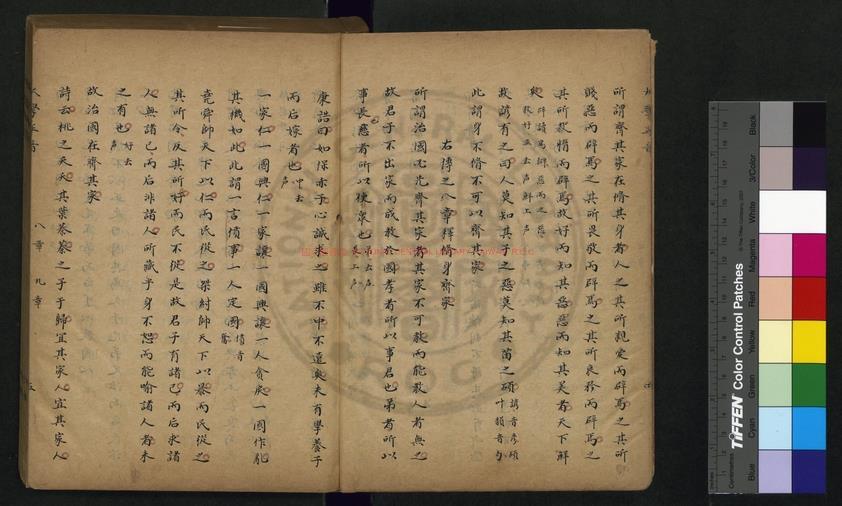 所謂齊其家在脩其身者人之其所親愛而辟焉之其所
賤惡而辟焉之其所畏敬而辟焉之其所哀矜而辟焉之
其所敖惰而辟焉故好而知其惡惡而知其美者天下鮮
矣
故諺有之曰人莫知其子之惡莫知其苗之碩 諺音彥碩
叶韻音勺
此謂身不脩不可以齊其家
右傳之八章釋脩身齊家
所謂治國必先齊其家者其家不可教而能教人者無之
故君子不出家而成教於國孝者所以事君也弟者所以
事長慈者所以使衆也 弟去声
長上声
康誥曰如保赤子心誠求之雖不中不遠矣未有學養子
而后嫁者也 中去
声
一家仁一國興仁一家讓一國興讓一人貪戾一國作亂
其機如此此謂一言僨事一人定國 僨音
奮
堯舜師天下以仁而民從之桀紂師天下以暴而民從之
其所令反其所好而民不從是故君子有諸己而后求諸
人無諸己而后非諸人所藏乎身不恕而能喻諸人者未
之有也 好去
声
故治國在齊其家
詩云桃之夭夭其葉蓁蓁之子于歸宜其家人宜其家人
八章 九章
五